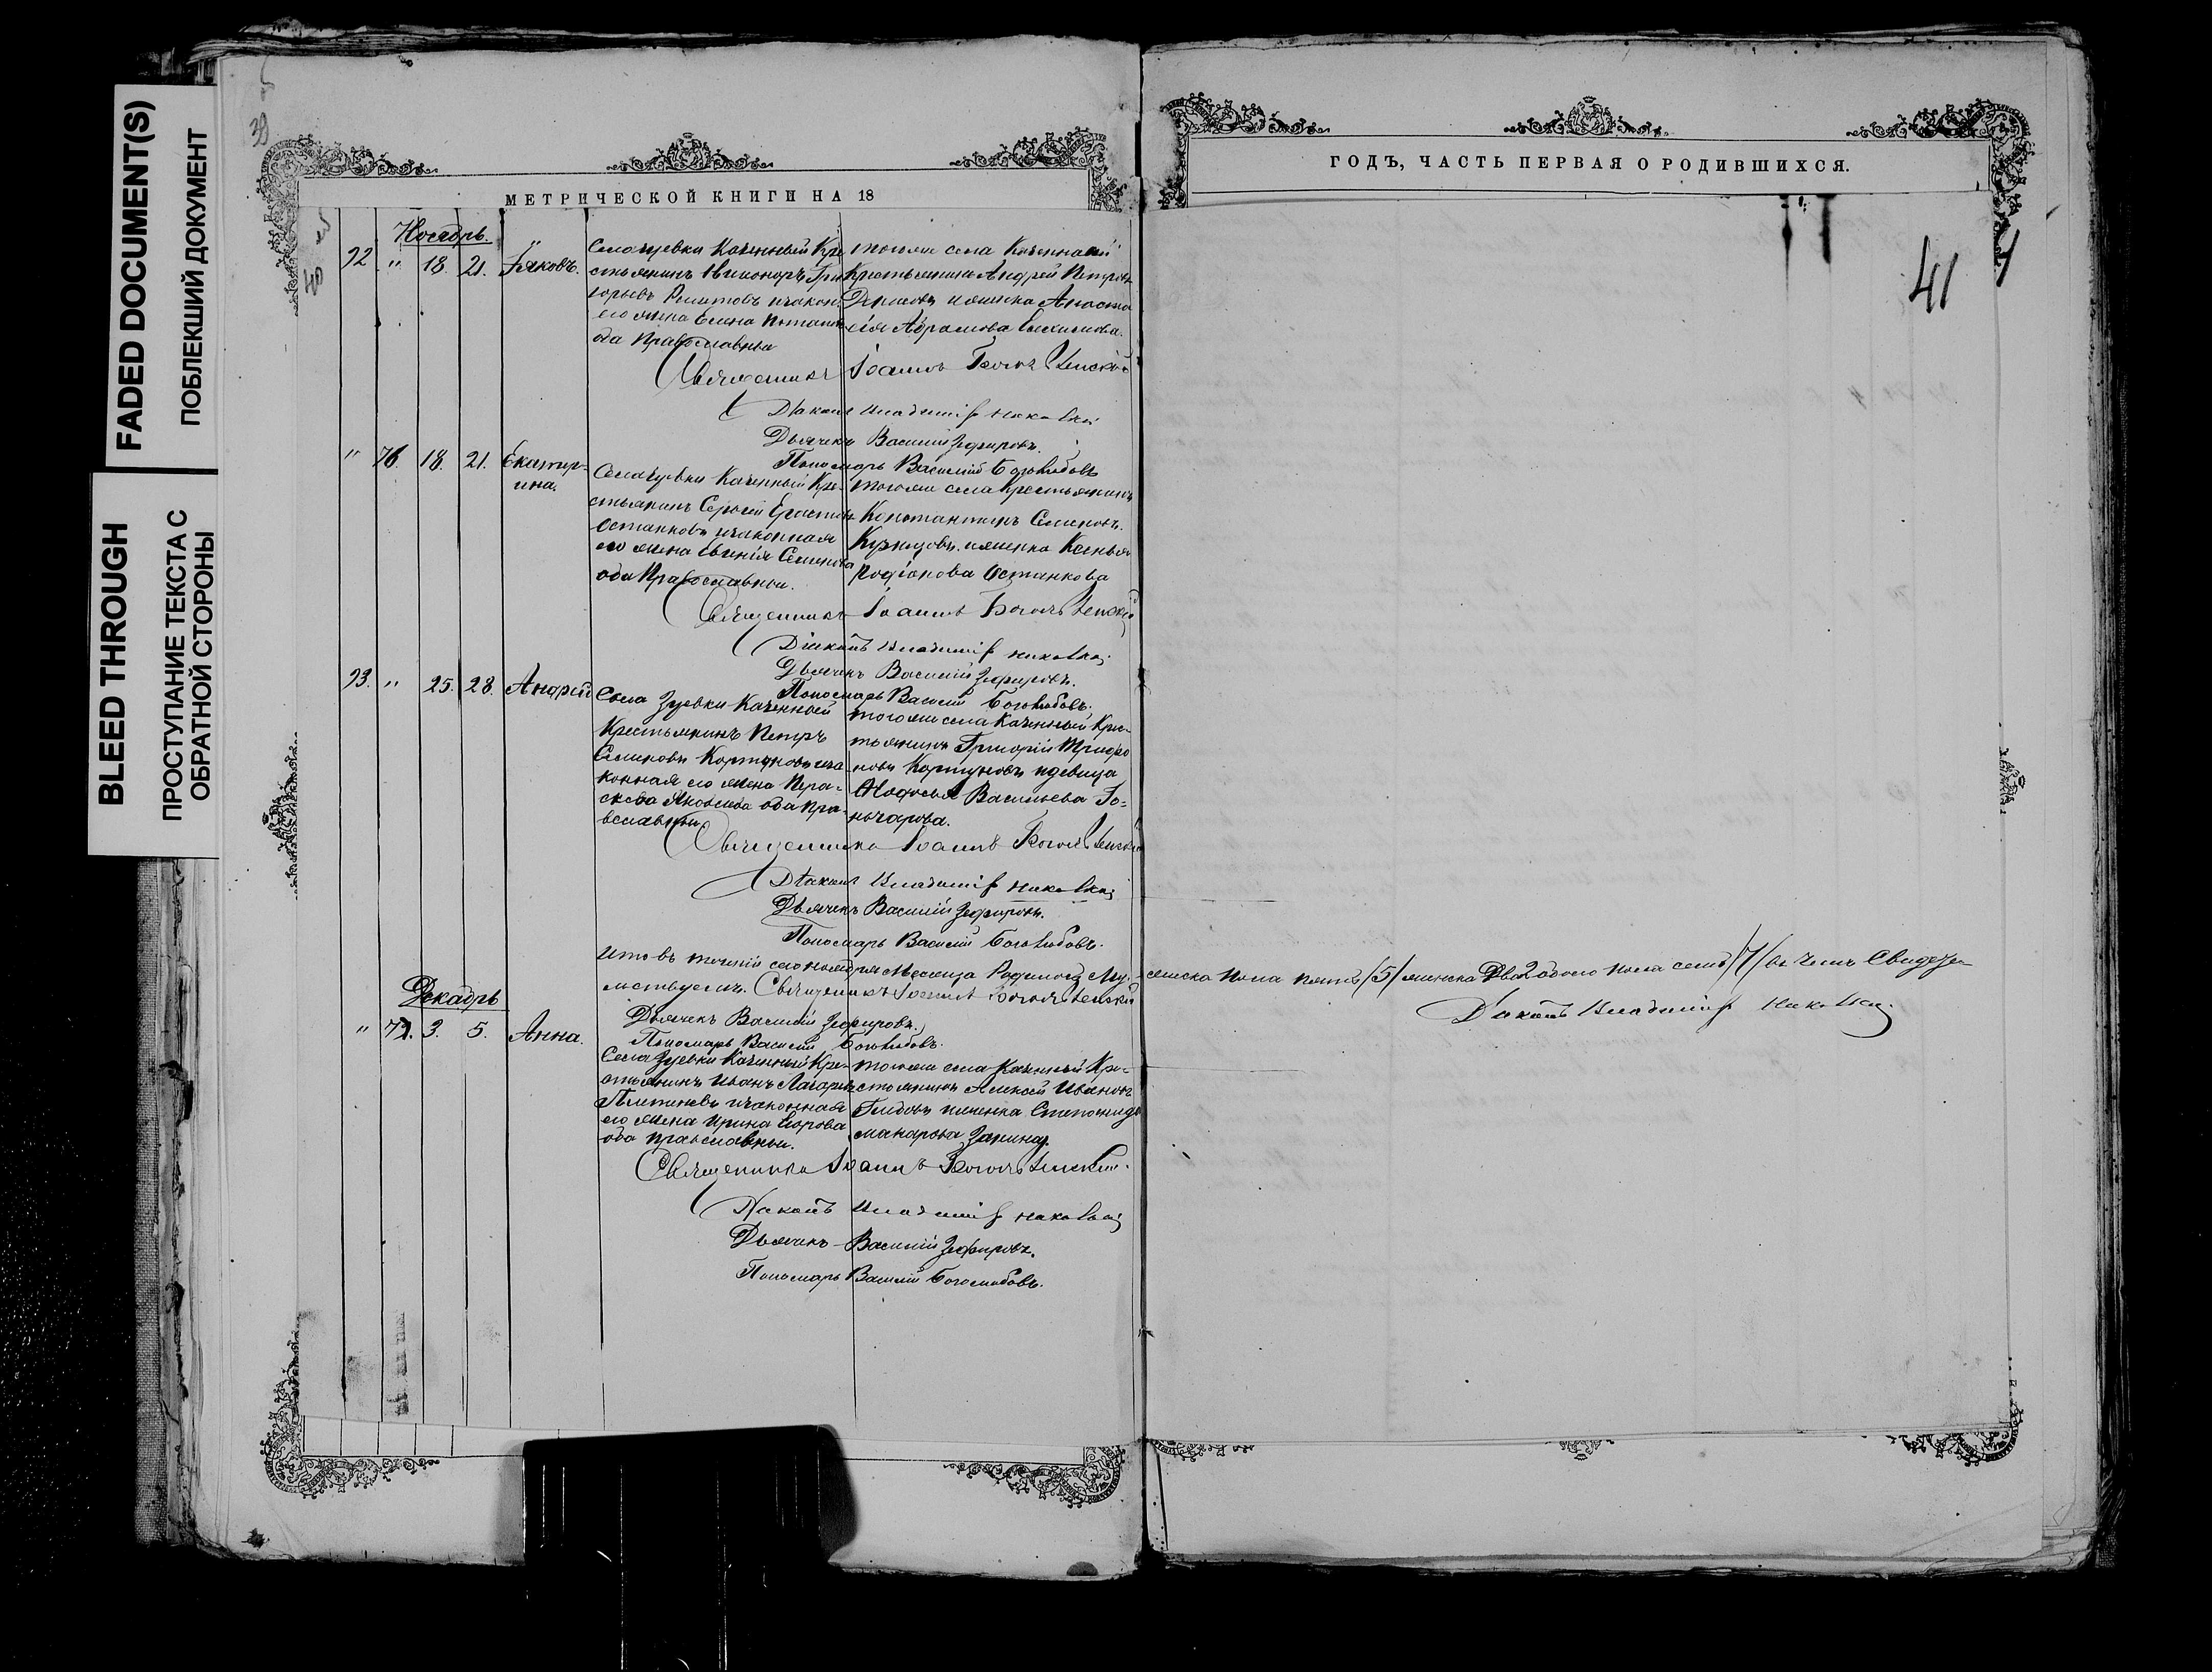 FADED DOCUMENT(S)
ПОБЛЕКШИЙ ДОКУМЕНТ
BLEED THROUGH
ПРОСТУПАНИЕ ТЕКСТА С
ОБРАТНОЙ СТОРОНЫ
39
40
МЕТРИЧЕСКОЙ КНИГИ НА 18
ГОДЪ, ЧАСТЬ ПЕРВАЯ О РОДИВШИХСЯ.
41
Ноябрь.
92 " 18. 21. Іяковъ.
Села Зуевки Казенный Кре
стьянинъ Никоноръ Гри
горьевъ и закон.
его жена Елена Потапо
ва оба Православныи
тогоже села Казенный
Крестьянинъ Андрей Петровъ
Денисовъ и женка Анаста
сія Абрамова
Священникъ Іоаннъ Богоявленскій
Діаконъ Владиміръ
Дьячекъ Василій Зефировъ.
Пономарь Василій Боголюбовъ
" 76. 18. 21. Екатер-
ина.
Села Зуевки Казенный Кре-
стьянинъ Сергей Ерастовъ
Останковъ и законная
его жена Евгенія Семенова
оба Православныи.
тогоже села Крестьянинъ
Константинъ Семеновъ.
Кузнцовъ. и женка Ксенья
Родіонова Останкова
Священникъ Іоаннъ Богоявленскій
Діаконъ Владиміръ
Дьячекъ Василій Зефировъ.
Пономарь Василій Боголюбовъ.
93. " 25. 28. Андрей
Села Зуевки Казенный
Крестьянинъ Петръ
Семеновъ Кортуновъ и за
конная его жена Пера-
скева Яковлева оба Пра-
вславныи
тогоже села Казенный Крес-
тьянинъ Григорій Трифо
новъ Кортуновъ и девица
Федосья Васильева Го-
нчарова.
Священникъ Іоаннъ Богоявленскій
Діаконъ Владиміръ
Дьячекъ Василій Зефировъ.
Пономарь Василій Боголюбовъ.
Что въ теченіи сего ноября месяца Родилось Му-жеска пола пять /5/ женска Два 2 обоего пола семь /7/ въ чемъ Свидете-
льствуемъ. Священникъ Іоаннъ Богоявленскій
Діаконъ Владиміръ
Дьячекъ Василій Зефировъ.
Пономарь Василій Боголюбовъ.
Декабрь
" 3. 5. Анна.
Села Зуевки Казенный Кре-
стьянинъ Иванъ Лазаревъ
и законная
его жена Ирина Егорова
оба православныи.
тогоже села Казенный Кре-
стьянинъ Алексей Ивановъ
Глебовъ и женка Степонида
Макарова
Священникъ Іоаннъ Богоявленскій.
Діаконъ Владиміръ
Дьячекъ Василій Зефировъ.
Пономарь Василій Боголюбовъ.